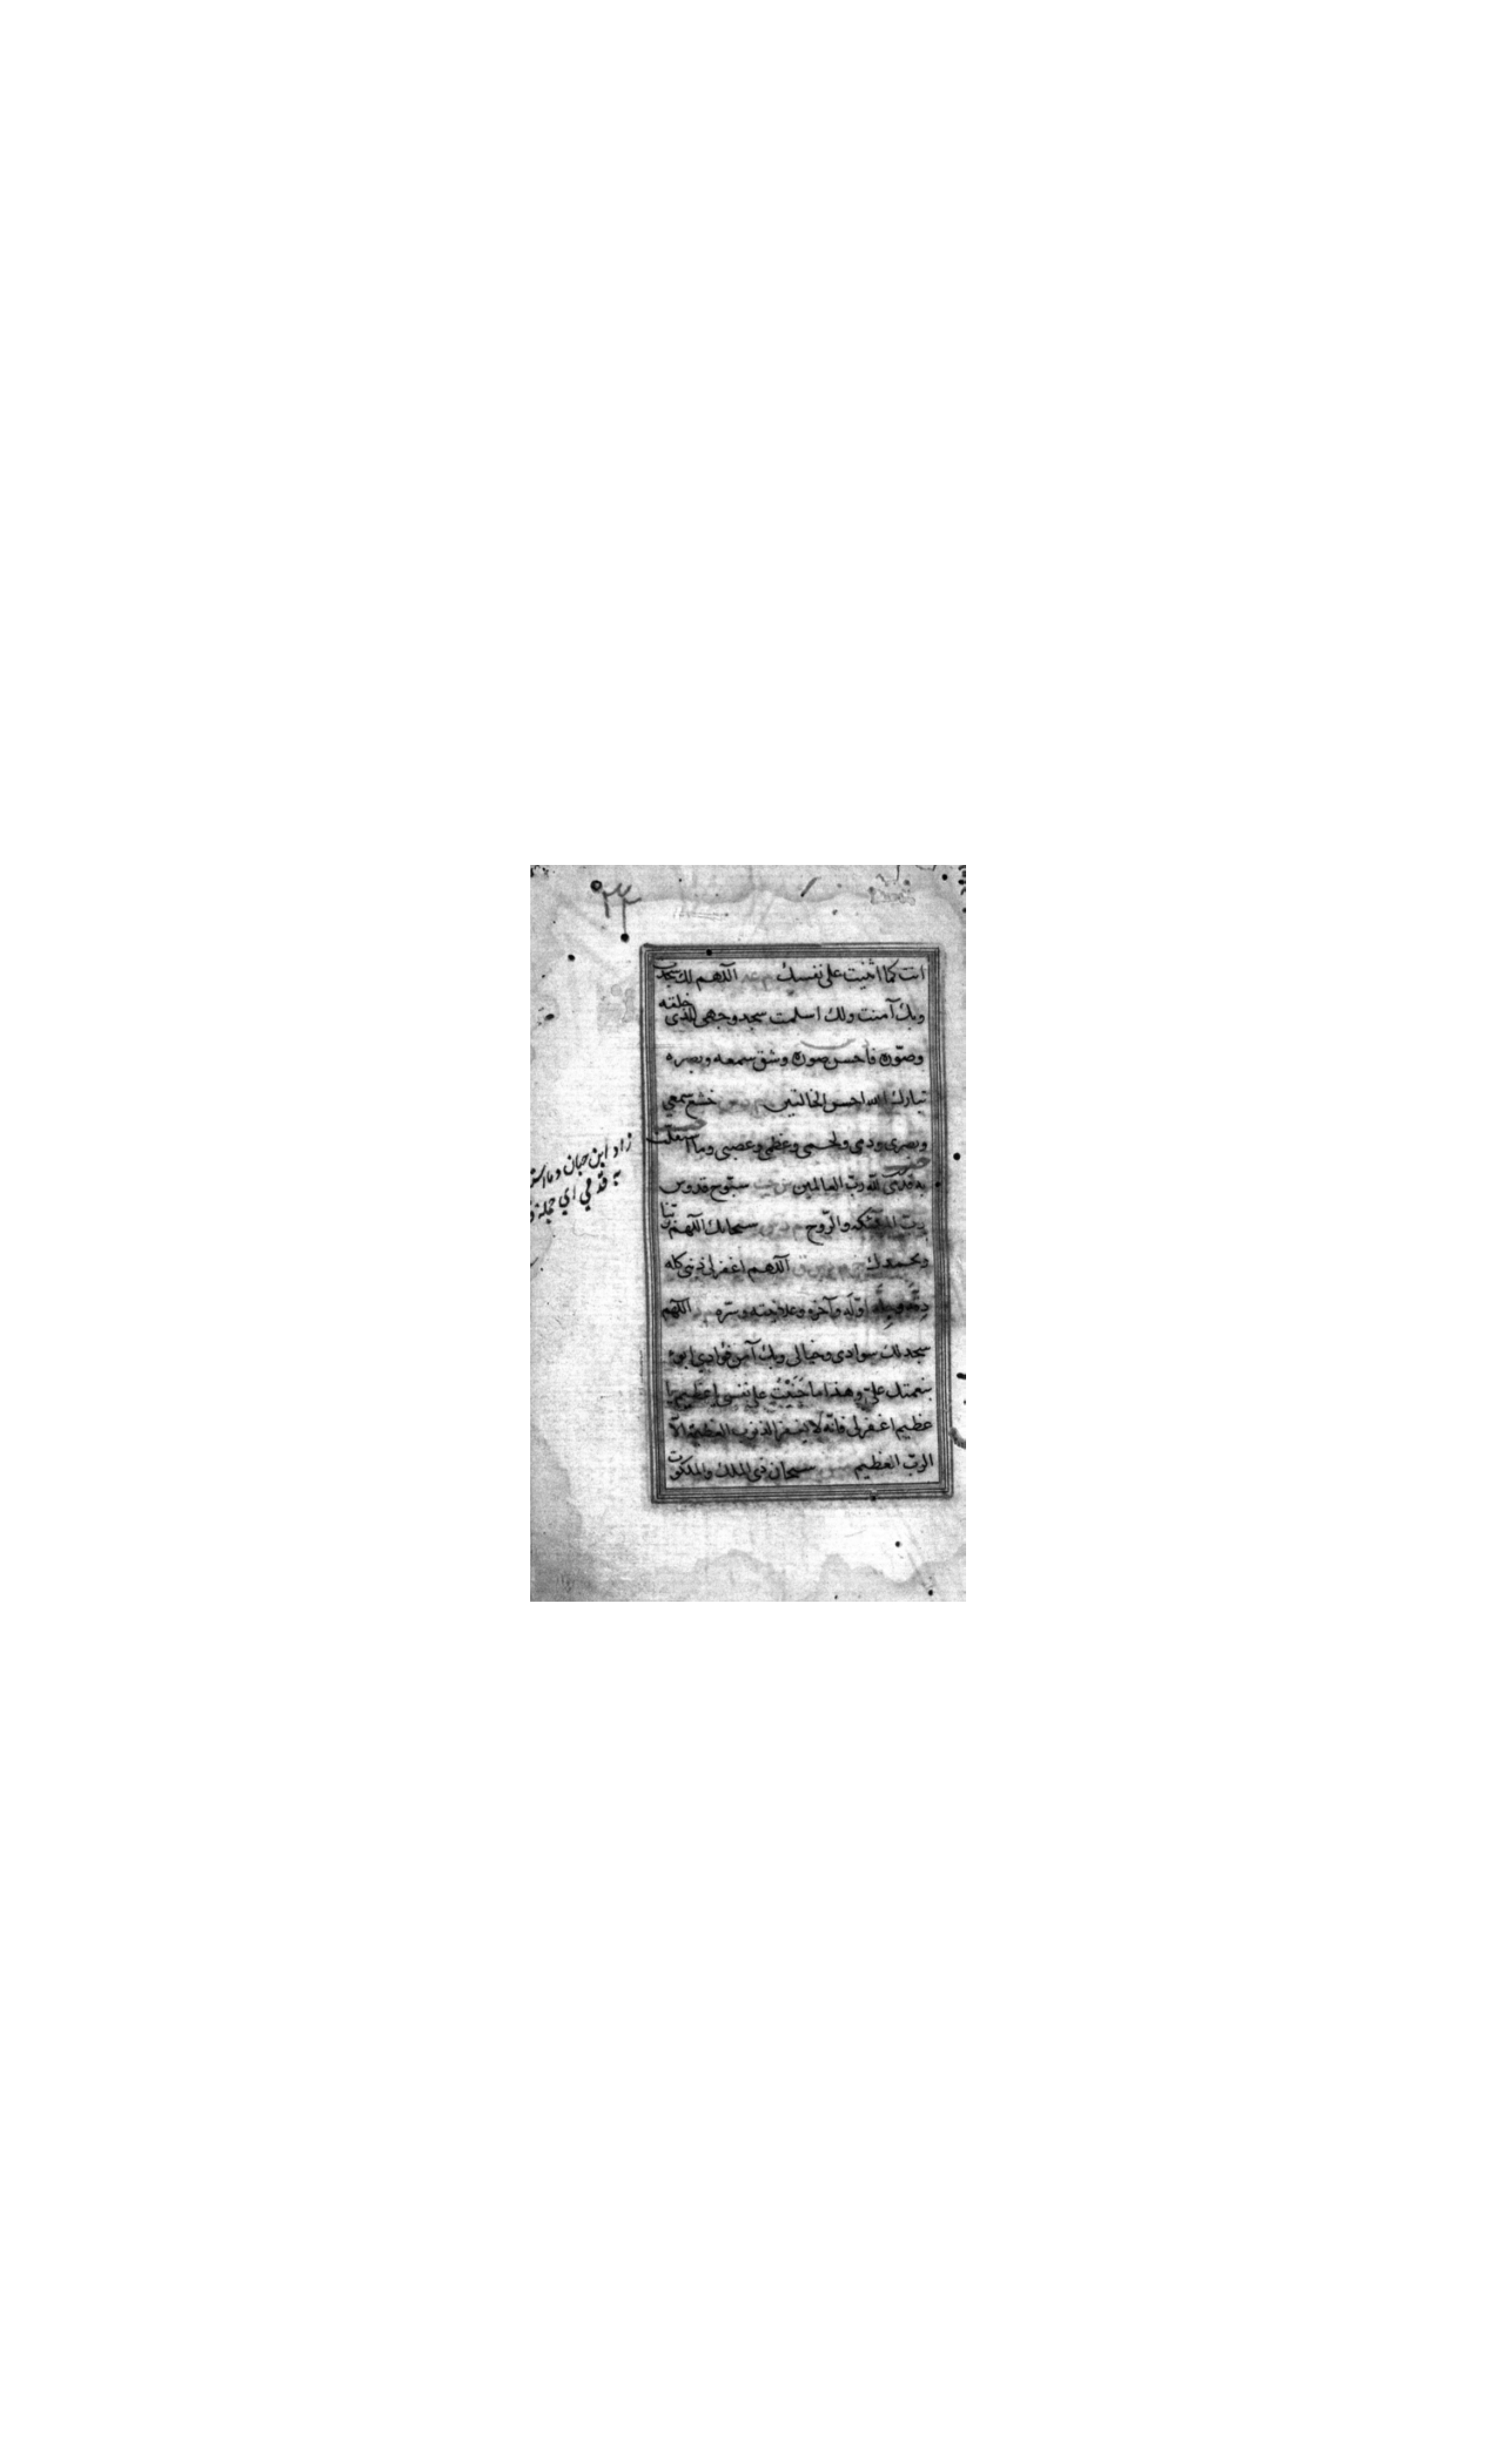 ٢٣
انت كما اثنيت على نفسك م عه اللهم لك سجدت
وبك آمنت ولك اسلمت سجد وجهى للذى خلقه
وصوّره فاحسن صوره وشق سمعه وبصره
تبارك الله احسن الخالقين م د س خشع سمعي
وبصرى ودمى ولحمى وعظمى وعصبى وما استقلت
به قدمى لله ربّ العالمين س حب سبّوح قدوس
ربّ الملئكه والرّوح م د س سبحانك اللهم ربّنا
وبحمدك اللهم اغفر لى ذنبى كله
دِقَّه وجِلَّه اوّله وآخره وعلانيته وسرّه م د اللهم
سجد لك سوادى وخيالى وبك آمن فؤادى ابوء
بنعمتك علىّ وهذا ما جَنَيْتُ على نفسى يا عظيم يا
عظيم اغفرلى فانّه لا يغفر الذنوب العظيمة الّا
الربّ العظيم سبحان ذى الملك والملكوت
زاد ابن حبان وما استقلت
به قدمي اي جملة